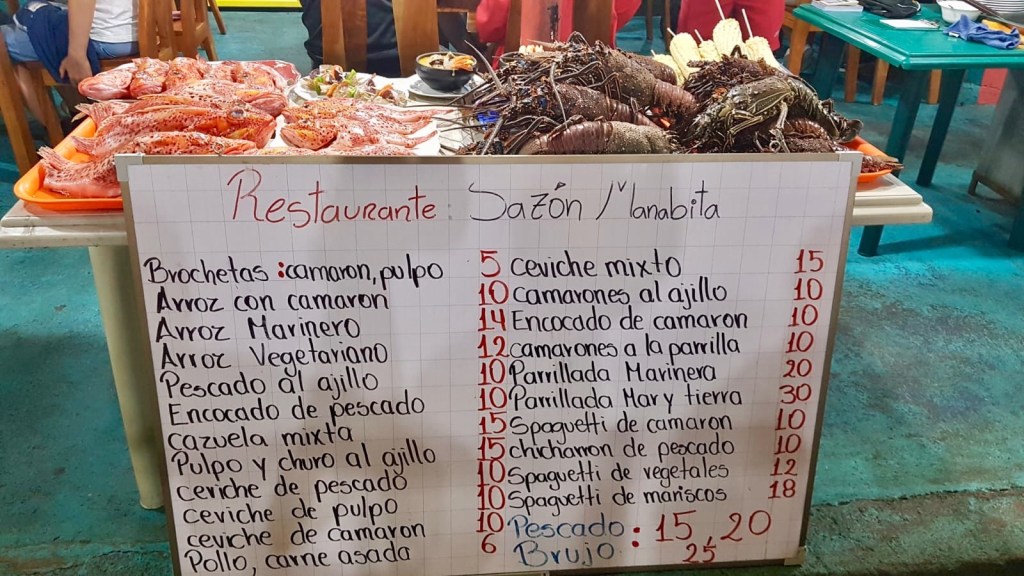 Restaurante: Sazón Manabita
Brochetas : camaron, pulpo 5
Arroz con camaron 10
Arroz Marinero 14
Arroz Vegetariano 12
Pescado al ajillo 10
Encocado de pescado 10
cazuela mixta 15
Pulpo y churo al ajillo 15
ceviche de pescado 10
ceviche de pulpo 10
ceviche de camaron 10
Pollo, carne asada 6
ceviche mixto 15
camarones al ajillo 10
Encocado de camaron 10
camarones a la parrilla 10
Parrillada Marinera 20
Parrillada Mar y tierra 30
Spaguetti de camaron 10
chicharron de pescado 10
Spaguetti de vegetales 12
Spaguetti de mariscos 18
Pescado : 15, 20
Brujo 25